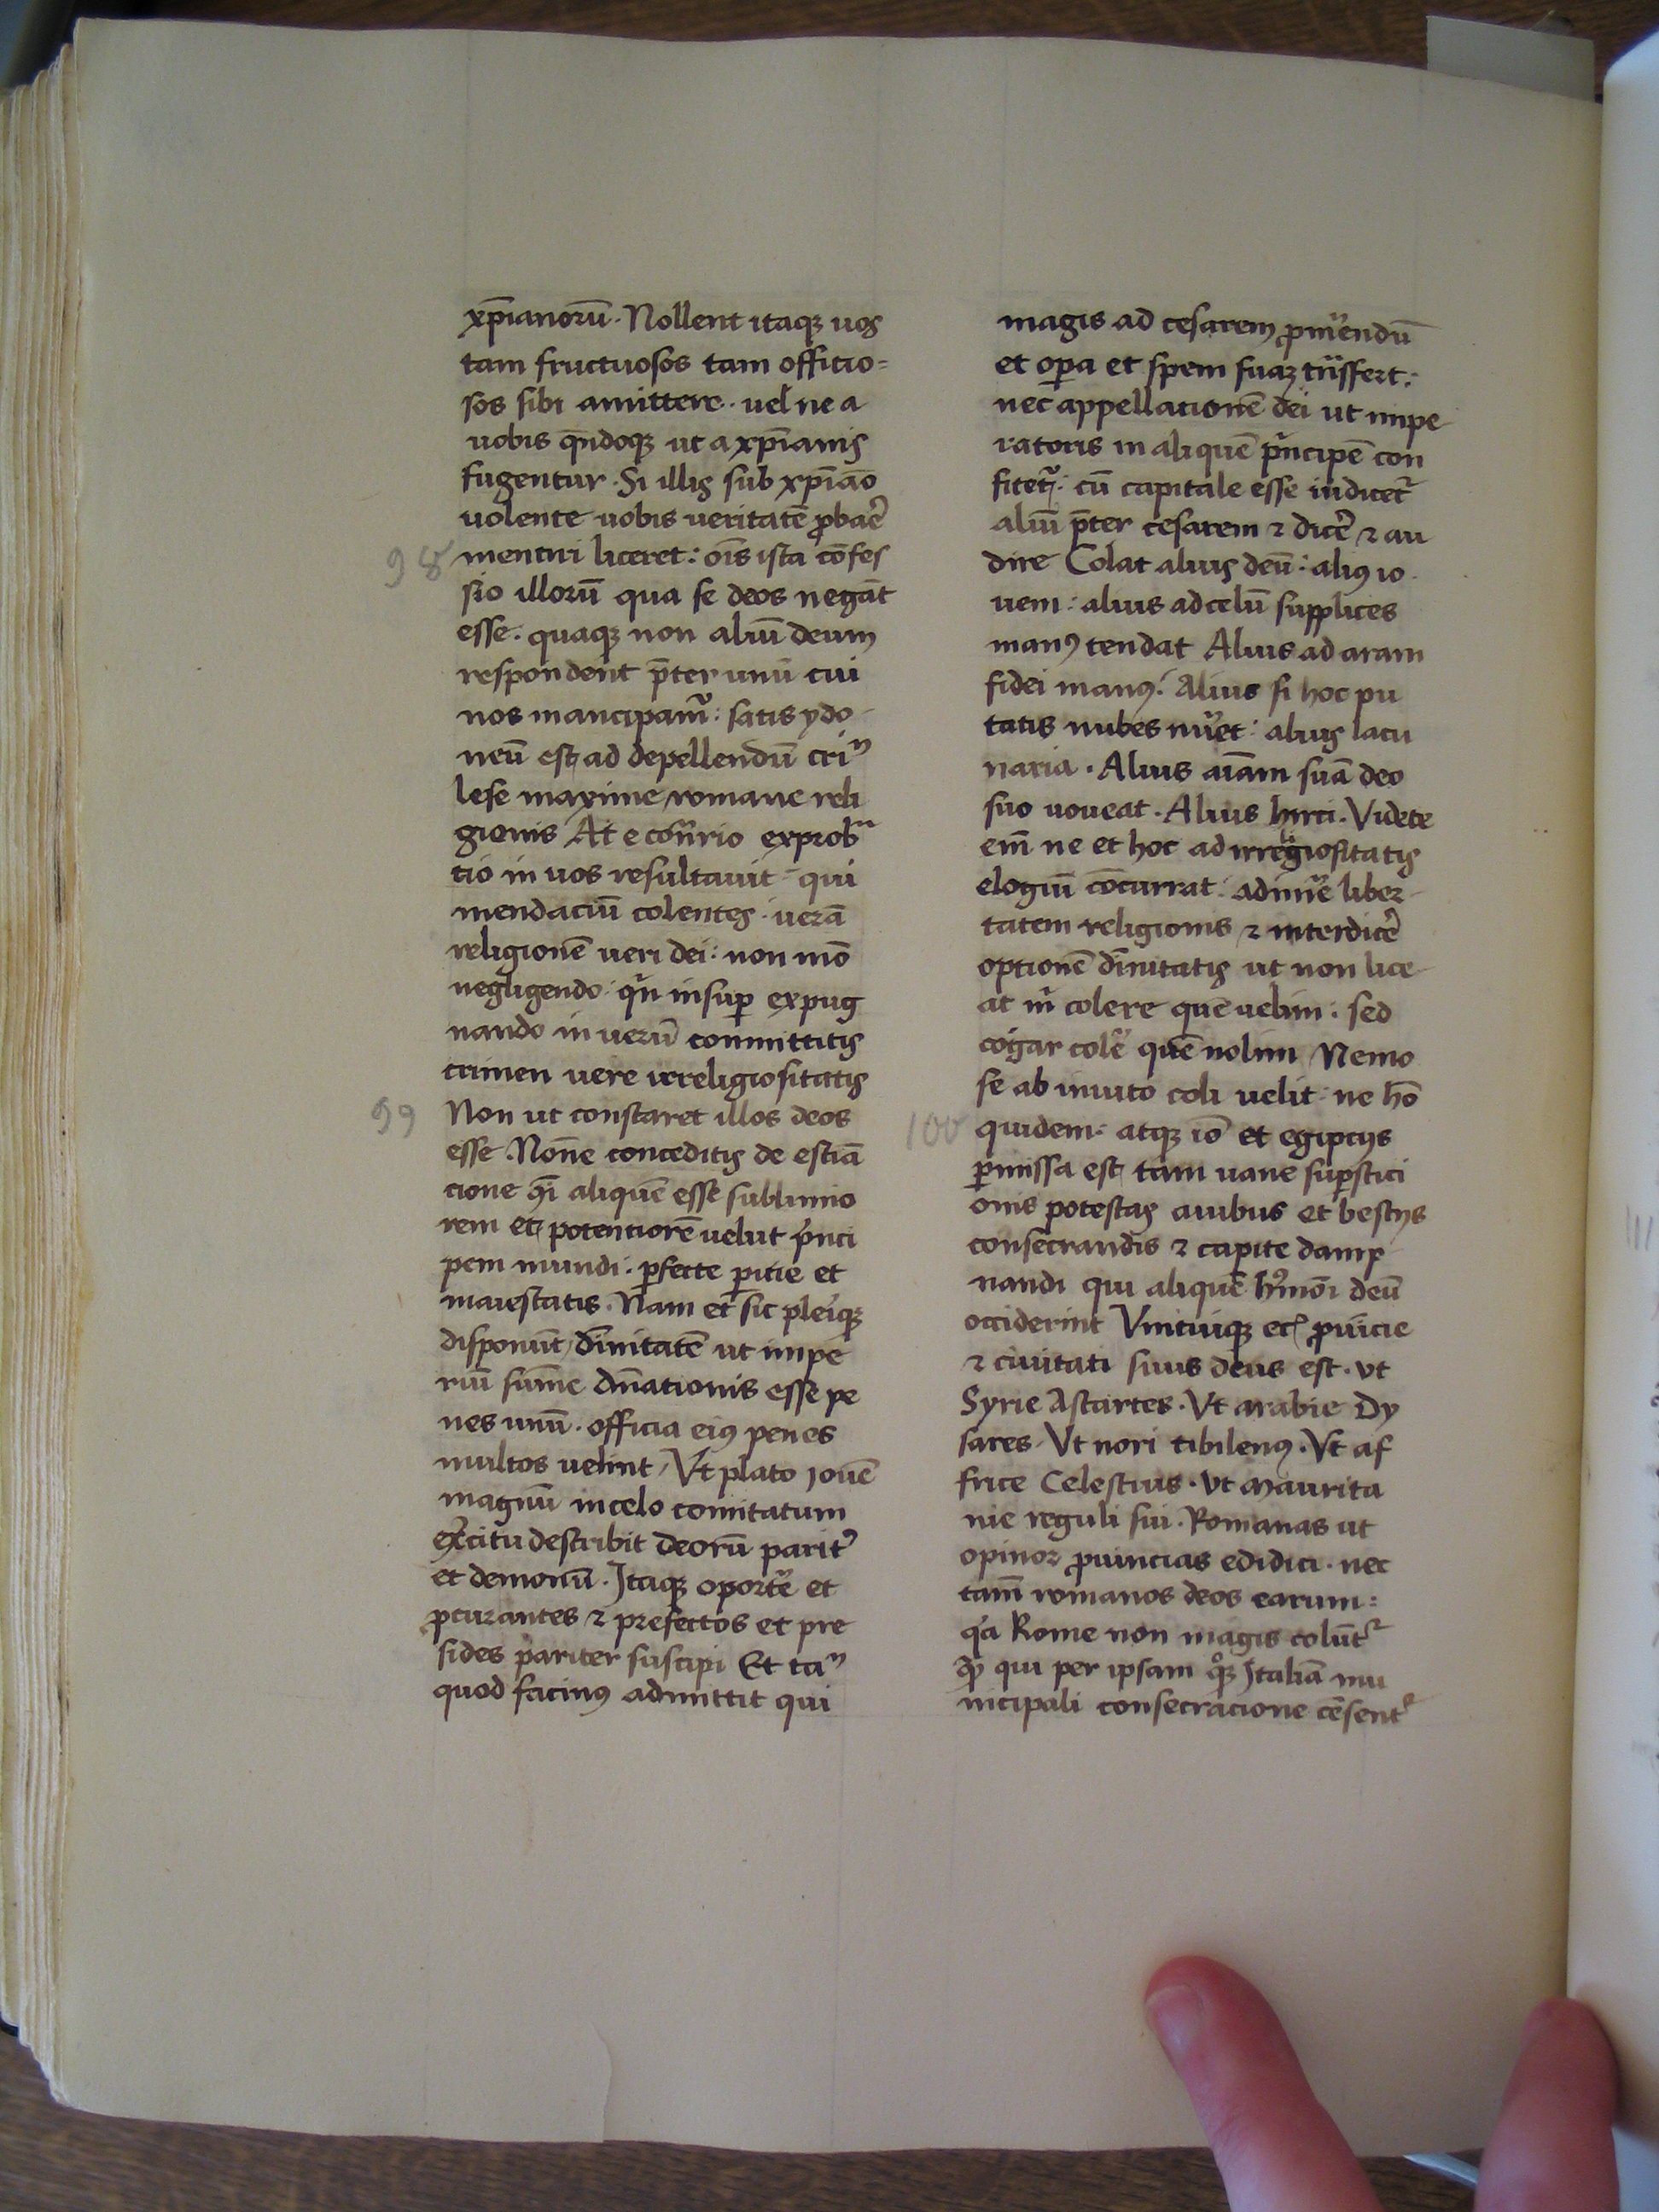 xp̄ianorū. Nollent itaqꝫ uos
tam fructuosos tam officio=
sos sibi amittere. uel ne a
uobis qn̄doqꝫ ut a xp̄ianis
fugentur. Si illis sub xp̄iāo
uolente uobis ueritatē ꝓbaē
98 mentiri liceret: oīs ista cōfes
sio illorū qua se deos negāt
esse. quaqꝫ non aliū deum
respondent p̄ter unū cui
nos mancipam᷑: satis ydo
neū est ad depellendū criᵐ
lese maxime romane reli
gionis At e cōn̄rio exprobᵃ
tio in uos resultauit qui
mendaciū colentes. uerā
religionē ueri dei: non mō
negligendo: qn̄ insuꝑ expug
nando in uerū committitis
crimen uere irreligiositatis
99 Non ut constaret illos deos
esse. Nōne conceditis de estiā
cione q̄i aliquē esse sublimio
rem et potentiorē uelut pͥnci
pem mundi. ꝑfecte ꝑitie et
maiestatis. Nam et sic pleiqꝫ
disponūt diīnitatē ut impe
riū sūme dn̄ationis esse pe
nes unū. officia eiꝰ penes
multos uelint / Vt plato iouē
magnū in celo comitatum
ex̄citu describit deorū parit̄
et demonū. Itaqꝫ oportē et
ꝓcurantes ⁊ prefectos et pre
sides pariter suscipi Et taᵐ
quod facinꝰ admittit qui
magis ad cesarem ꝓm̄endū
et oꝑa et spem suaꝫ trͣnsfert:
nec appellationē dei ut impe
ratoris in aliquē pͥncipē con
fitet᷑: cū capitale esse iudicet᷑
aliū p̄ter cesarem ⁊ dic̄e ⁊ au
dire Colat alius deū: aliꝰ io
uem: alius ad celū supplices
manꝰ tendat Alius ad aram
fidei manꝰ. Alius si hoc pu
tatis nubes nūet: alius lacu
naria. Alius aīam suā deo
suo uoueat. Alius hirci. Videte
em̄ ne et hoc ad irregiositatis
elogiū concurrat: adim̄e liber
tatem religionis ⁊ interdic̄e
optionē diīnitatis ut non lice
at m̄ colere quē uelim: sed
cogar colē quē nolim Nemo
se ab inuito coli uelit: ne hō
100 quidem: atqꝫ iō et egiptijs
ꝑmissa est tam uane suꝑstici
onis potestas auibus et bestijs
consecrandis ⁊ capite damp
nandi qui aliquē hꝰmōi deū
occiderint Vnicuiqꝫ ec̄ ꝓuīcie
⁊ ciuitati suus deus est. ut
Syrie Astartes. Vt arabie Dy
sares. Vt nori tibilenꝰ. Vt af
frice Celestius. Vt Maurita
nie reguli sui. Romanas ut
opinor ꝓuincias edidici. nec
tam̄ romanos deos earum:
qͥa Rome non magis colūt᷑
qͣꝫ qui per ipsam qͦqꝫ Italiā mu
nicipali consecracione cēsent᷑